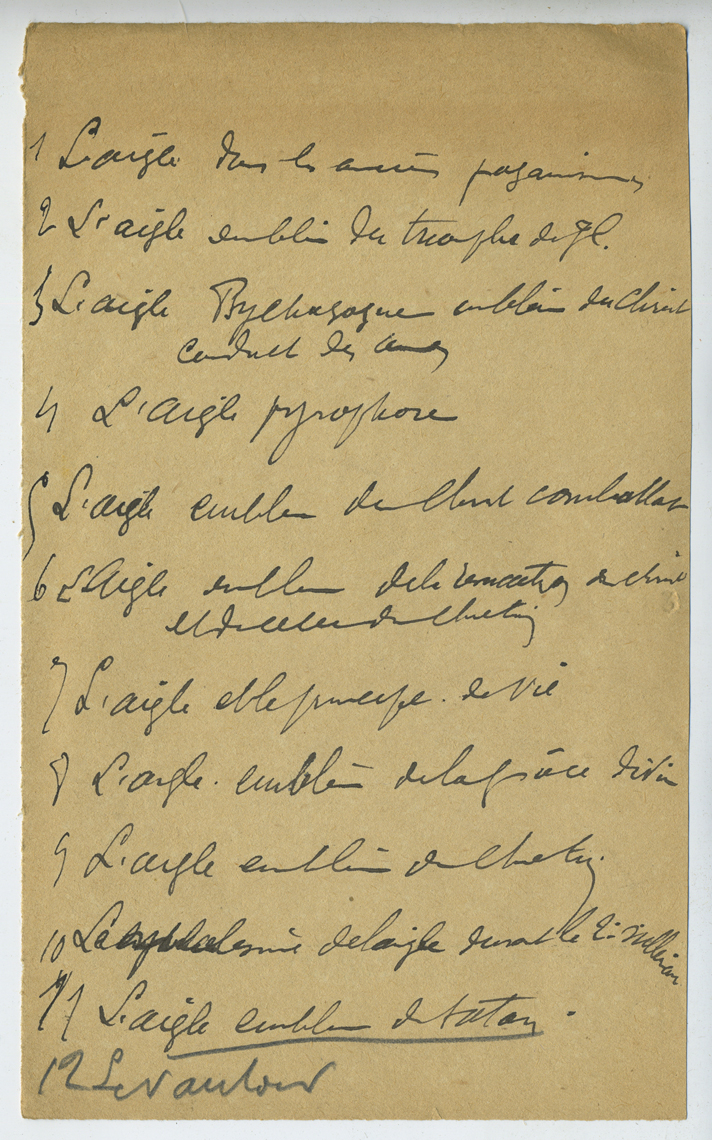 1 L'aigle dans les anciens paganismes
2 L'aigle emblème du triomphe de
3 L'aigle Psychagogue emblème du Christ
conduct des ames
4 L'aigle pyrophore
5 L'aigle emblème du Christ combattant
6 L'Aigle emblème de la résurrection du Christ
et de celle du Chrétien
7 L'aigle et le principe de vie
8 L'aigle emblème de la grâce divine
9 L'aigle emblème du Chrétien
10 de l'aigle durant le
11 L'aigle emblème de Satan.
12 Le vautour